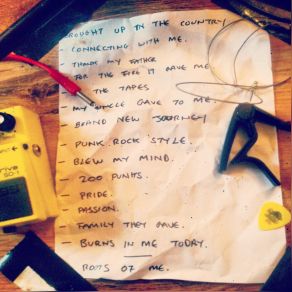 BROUGHT UP IN THE COUNTRY
- CONNECTING WITH ME.
- THANK MY FATHER
FOR THE FIRE IT GAVE ME
- THE TAPES
MY UNCLE GAVE TO ME.
- BRAND NEW JOURNEY
- PUNK ROCK STYLE.
- BLEW MY MIND.
- 200 PUNKS.
- PRIDE.
- PASSION.
- FAMILY THEY GAVE.
- BURNS IN ME TODAY.
ROOTS OF ME.
rive
SD-1